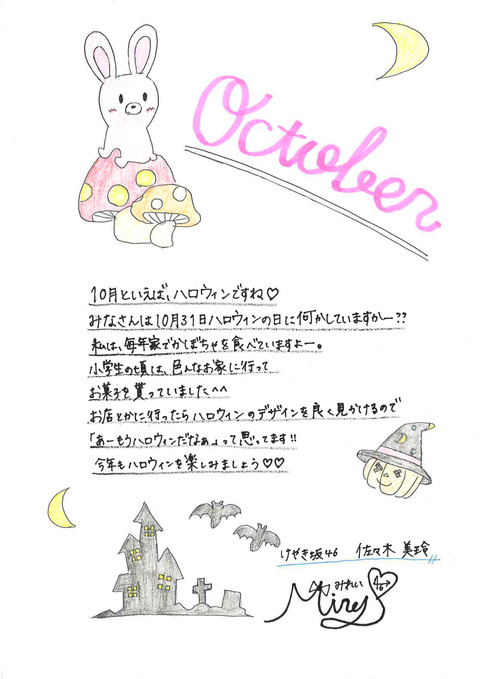 October
10月といえば、ハロウィンですね♡
みなさんは10月31日ハロウィンの日に何かしていますかー??
私は、毎年家でかぼちゃを食べていますよー。
小学生の頃は、色んなお家に行って
お菓子を貰っていました^^
お店とかに行ったらハロウィンのデザインを良く見かけるので
「あーもうハロウィンだなぁ。」って思ってます!!
今年もハロウィンを楽しみましょう♡♡
けやき坂46 佐々木 美玲
みれい
Mirei